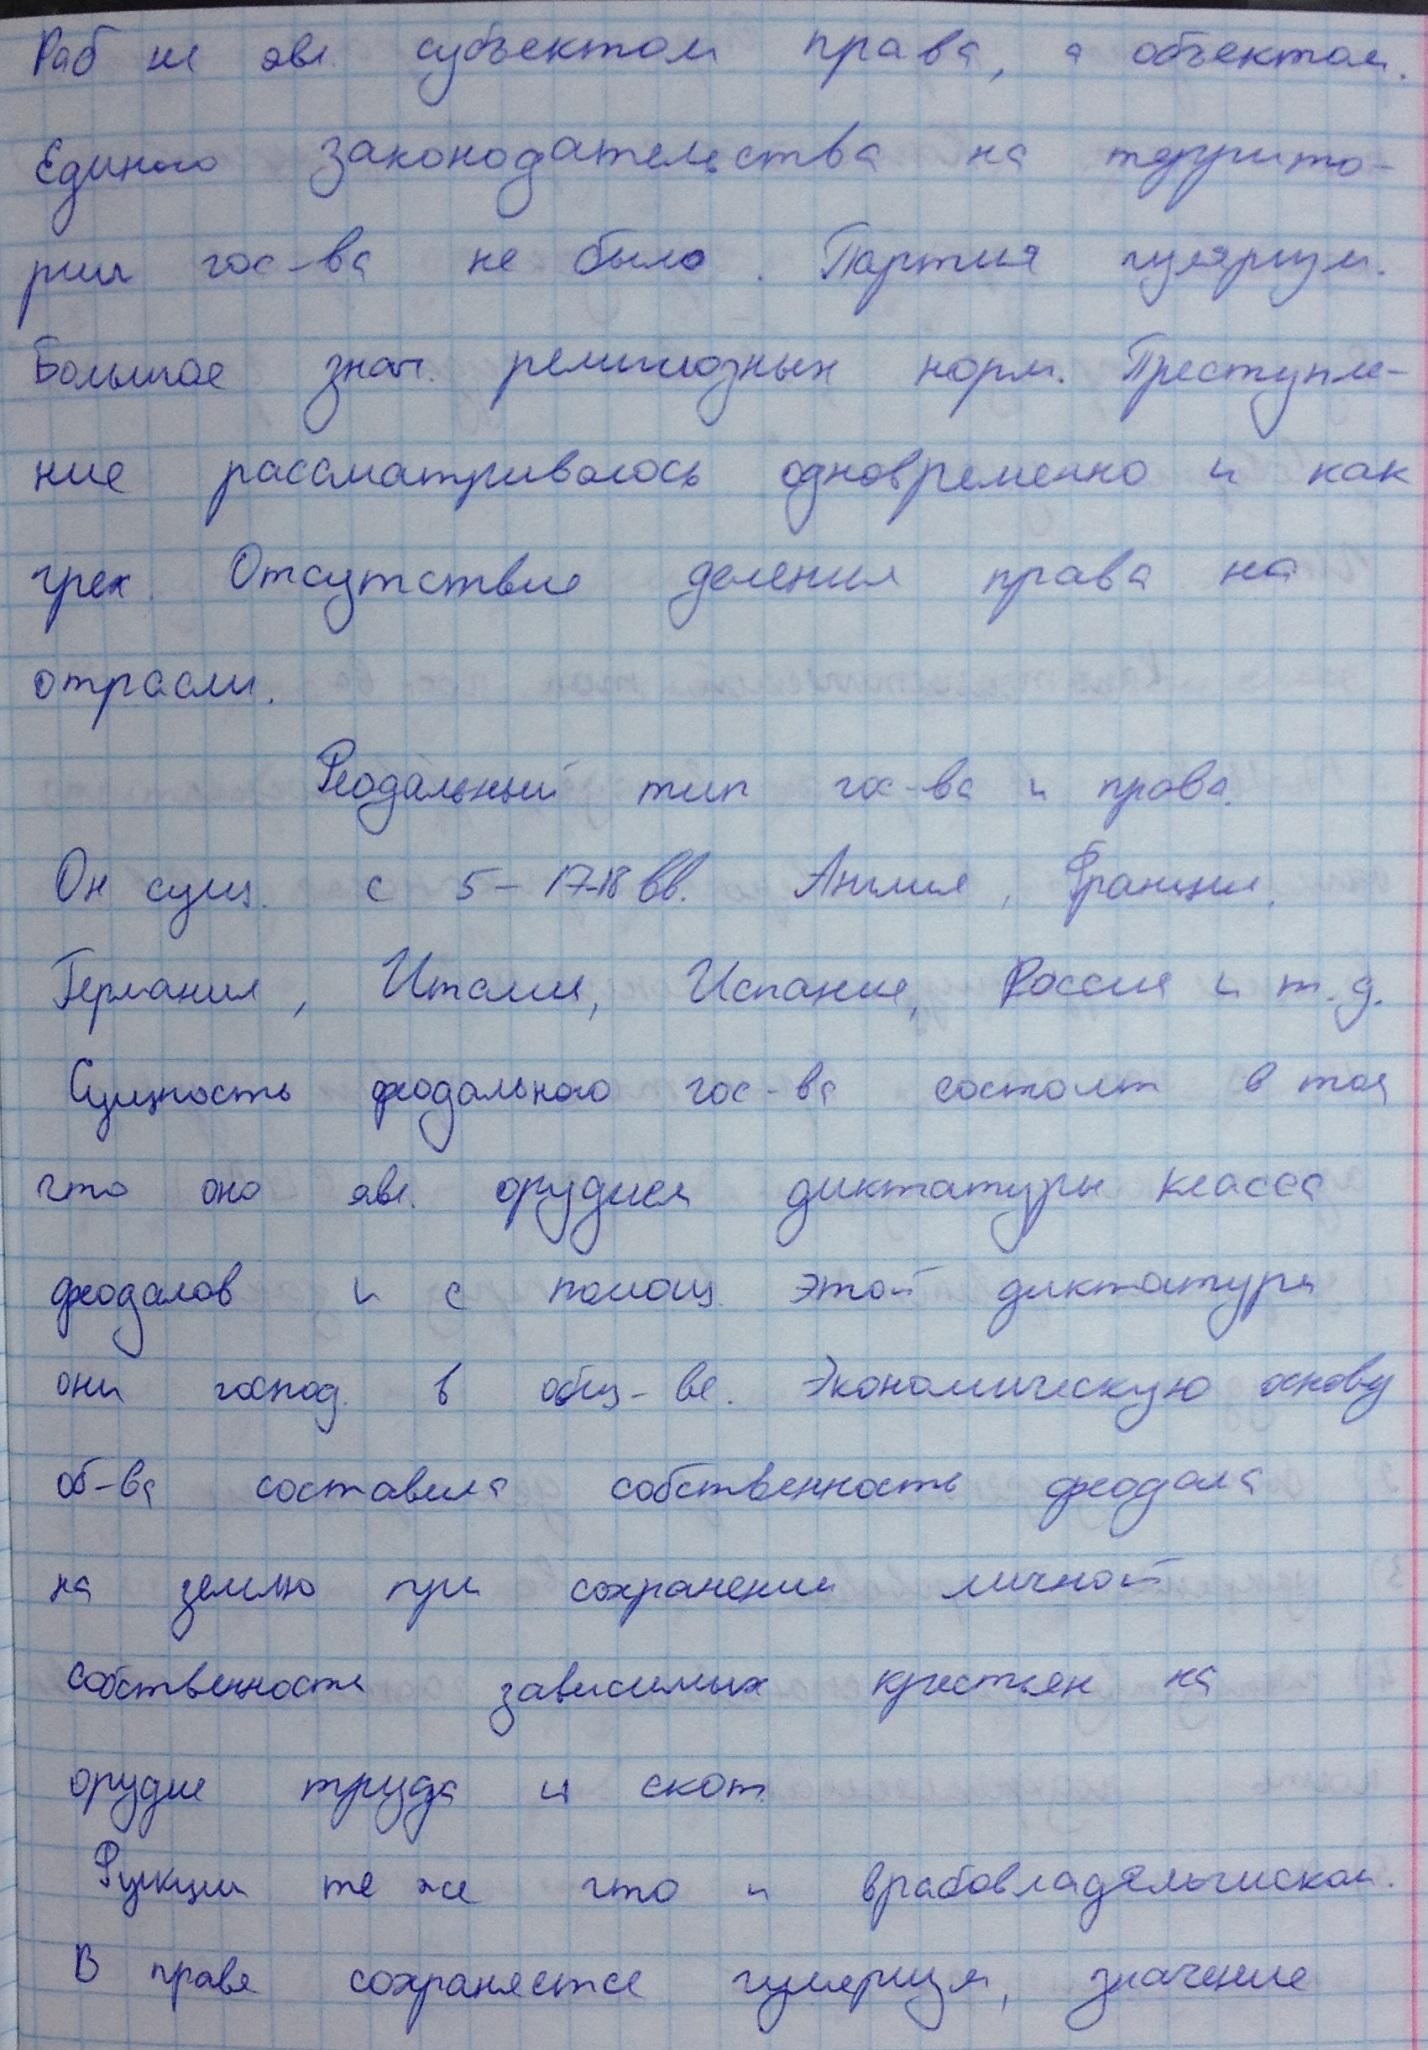 Раб не явл. субъектом права, а объектом.
Единого законодательства на террито-
рии гос-ва не было. Партия
Большое знач. религиозных норм. Преступле-
ние рассматривалось одновременно и как
грех. Отсутствие деления права на
отрасли.
Феодальный тип гос-ва и права.
Он сущ. с 5-17-18 вв. Англия, Франция,
Германия, Италия, Испания, Россия и т.д.
Сущность феодального гос-ва состоит в том
что оно явл. орудием диктатуры класса
феодалов и с помощ. этой диктатуры
они господ. в общ-ве. Экономическую основу
об-ва составила собственность феодала
на землю при сохранении личной
собственности зависимых крестьян на
орудие труда и скот.
Функции те же что и в рабовладельчиском.
В праве сохраняется значение